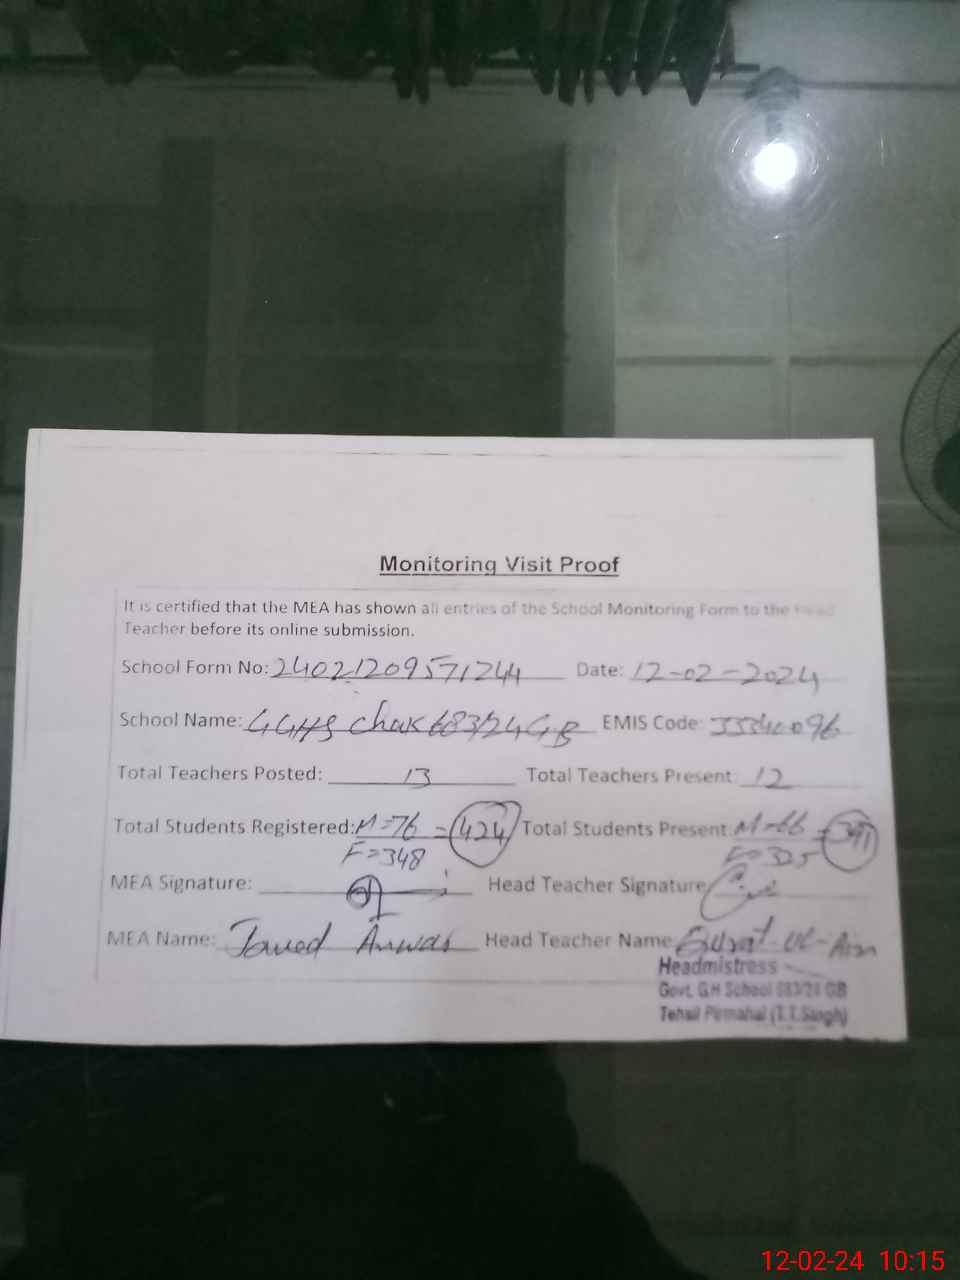 Monitoring Visit Proof
It is certified that the MEA has shown all entries of the School Monitoring Form to the Head
Teacher before its online submission.
School Form No: 24021209571244 Date: 12-02-2024
School Name: GGHS Chak 683/24 GB EMIS Code: 33340096
Total Teachers Posted: 13 Total Teachers Present: 12
Total Students Registered: M=76 = 424 Total Students Present: M=66 = 391
F=348 F=325
MEA Signature: Head Teacher Signature
MEA Name: Javed Anwar Head Teacher Name
Headmistress
Govt. G.H School 683/24 GB
Tehsil Pirmahal (T.T.Singh)
12-02-24 10:15